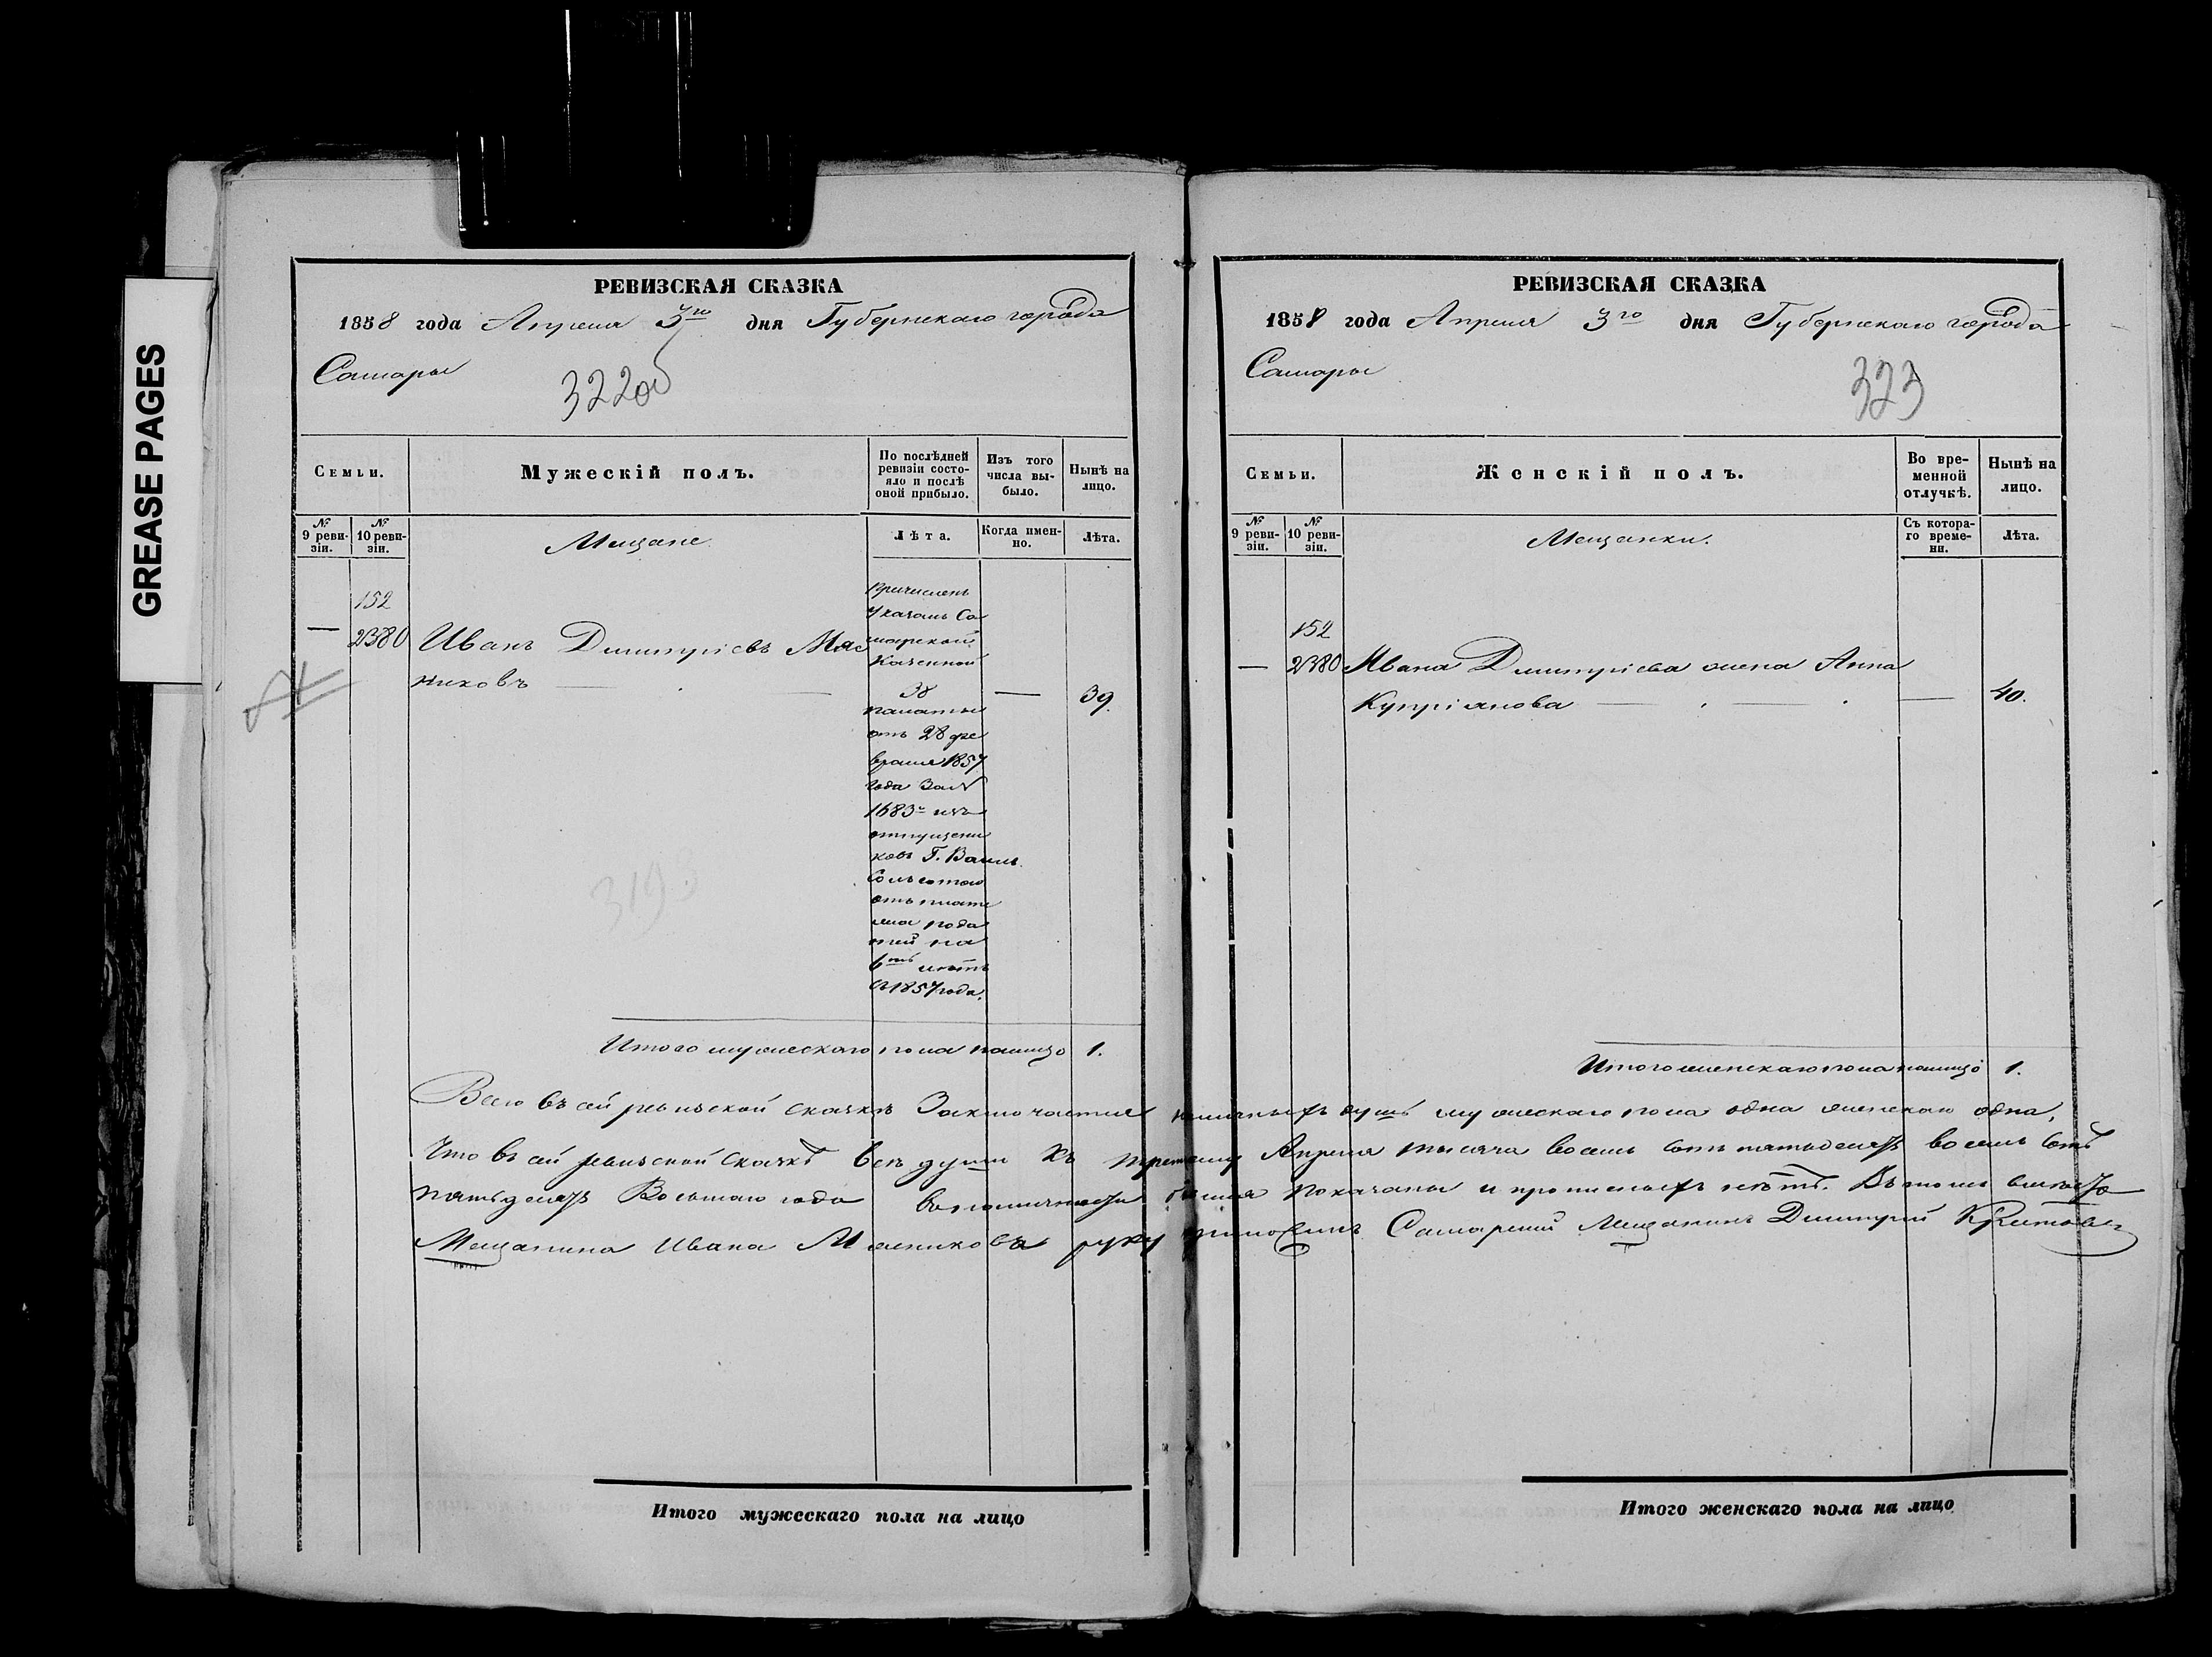 GREASE PAGES
РЕВИЗСКАЯ СКАЗКА
1858 года Апреля 3го дня Губернскаго города
Самары
322об
Семьи.
Мужескій полъ.
По послѣдней ревизіи состояло и послѣ оной прибыло.
Изъ того числа выбыло.
Нынѣ на лицо.
№ 9 ревизіи.
№ 10 ревизіи.
Мещане
Лѣта.
Когда именно.
Лѣта.
152
— 2380
Иванъ Димитріевъ Мяс
никовъ —
Причисленъ
Указомъ Са
марской
Казенной
38 — 39.
палаты
отъ 28 фе
враля 1857
года за №
1683 изъ
отпущени
ковъ Г.
отъ плате
жа пода
тей на
6ть лѣтъ
съ 1857 года.
319
Итого мужескаго пола налицо 1.
РЕВИЗСКАЯ СКАЗКА
1858 года Апреля 3го дня Губернскаго города
Самары
323
Семьи.
Женскій полъ.
Во временной отлучкѣ.
Нынѣ на лицо.
№ 9 ревизіи.
№ 10 ревизіи.
Мещанки.
Съ котораго времени.
Лѣта.
152
— 2380
Ивана Димитріева жена Анна
Купріянова — — 40.
Итого женскаго пола налицо 1.
Всего въ сей ревизской сказкѣ Заключается наличныхъ душъ мужескаго пола одна женскаго одна,
Что въ сей ревизской сказкѣ всѣ души къ третьему Апреля тысяча восемь сотъ пятьдесятъ восемь сотъ
пятьдесятъ Восьмаго года показаны и прописныхъ нѣтъ. Въ томъ вместо
Мещанина Ивана Мясникова руку приложилъ Самарский Мещанинъ Димитрий
Итого мужескаго пола на лицо
Итого женскаго пола на лицо